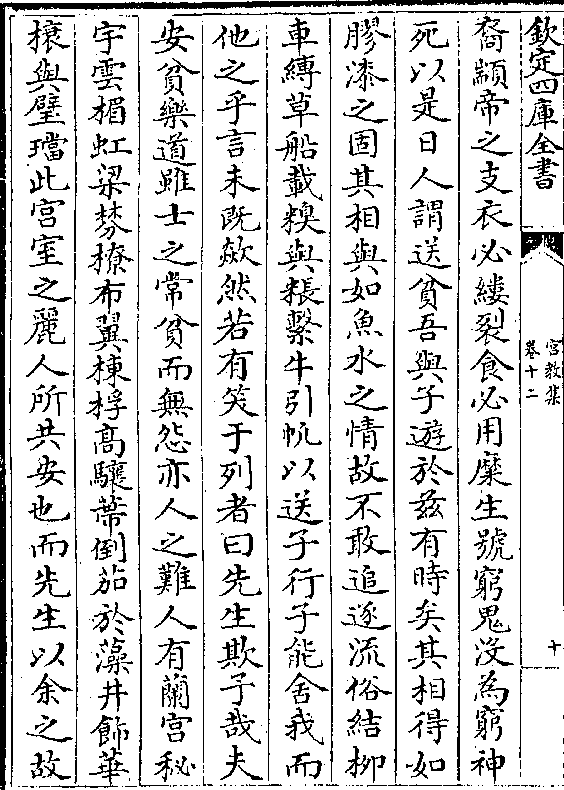 欽定四庫全書
宮教集
卷十二
十
裔顓帝之支衣必縷裂食必用糜生號窮鬼没為窮神
死以是日人謂送貧吾與子遊於兹有時矣其相得如
膠漆之固其相與如魚水之情故不敢追逐流俗結柳
車縛草船載糗與粻繫牛引帆以送子行子能舍我而
他之乎言未既歘然若有笑于列者曰先生欺予哉夫
安貧樂道雖士之常貧而無怨亦人之難人有蘭宫秘
宇雲楣虹梁棼橑布翼棟桴髙驤蔕倒茄於藻井飾華
榱與璧璫此宫室之麗人所共安也而先生以余之故